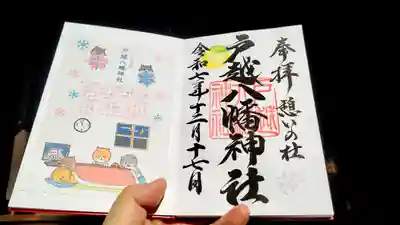 奉拝 憩いの杜
戸越八幡神社
令和七年十二月十七日
戸越八幡神社